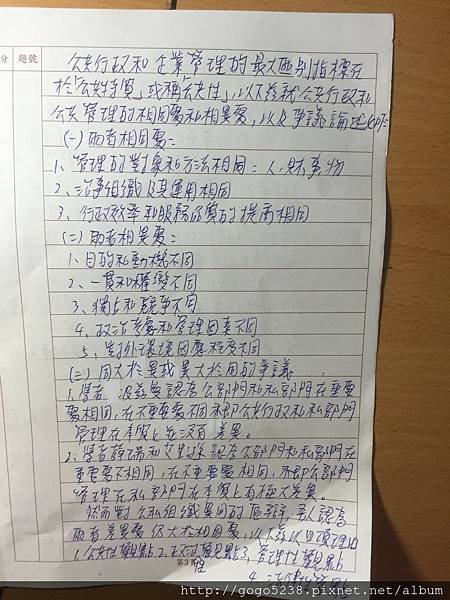 分
題號
公共行政和企業管理的最大區別指標在
於「公共特質」或稱「公共性」,以下茲就公共行政和
公共管理的相同處和相異處,以及爭議論述如下:
(一)兩者相同處:
1、管理的對象和方法相同:人、財、事、物
2、治事組織及其運用相同
3、行政效率和服務品質的提高相同
(二)兩者相異處:
1、目的和動機不同
2、一貫和權變不同
3、獨占和競爭不同
4、政治考慮和管理因素不同
5、對外環境因應程度不同
(三)同大於異或異大於同的爭議
1、學者 認為公部門和私部門在重要
處相同,在不重要處不同,亦即公共行政和私部門
管理在本質上並沒有差異。
2、學者 認為公部門和私部門在
重要處不相同,在不重要處相同,亦即公部門
管理在私部門在本質上有極大差異。
然而對公私組織異同的 ,吾人認為
兩者差異處仍大於相同處,以
1、公共性觀點 2、政治性觀點 3、管理性觀點
4、
第3頁
http://gogo5238.pixnet.net/album